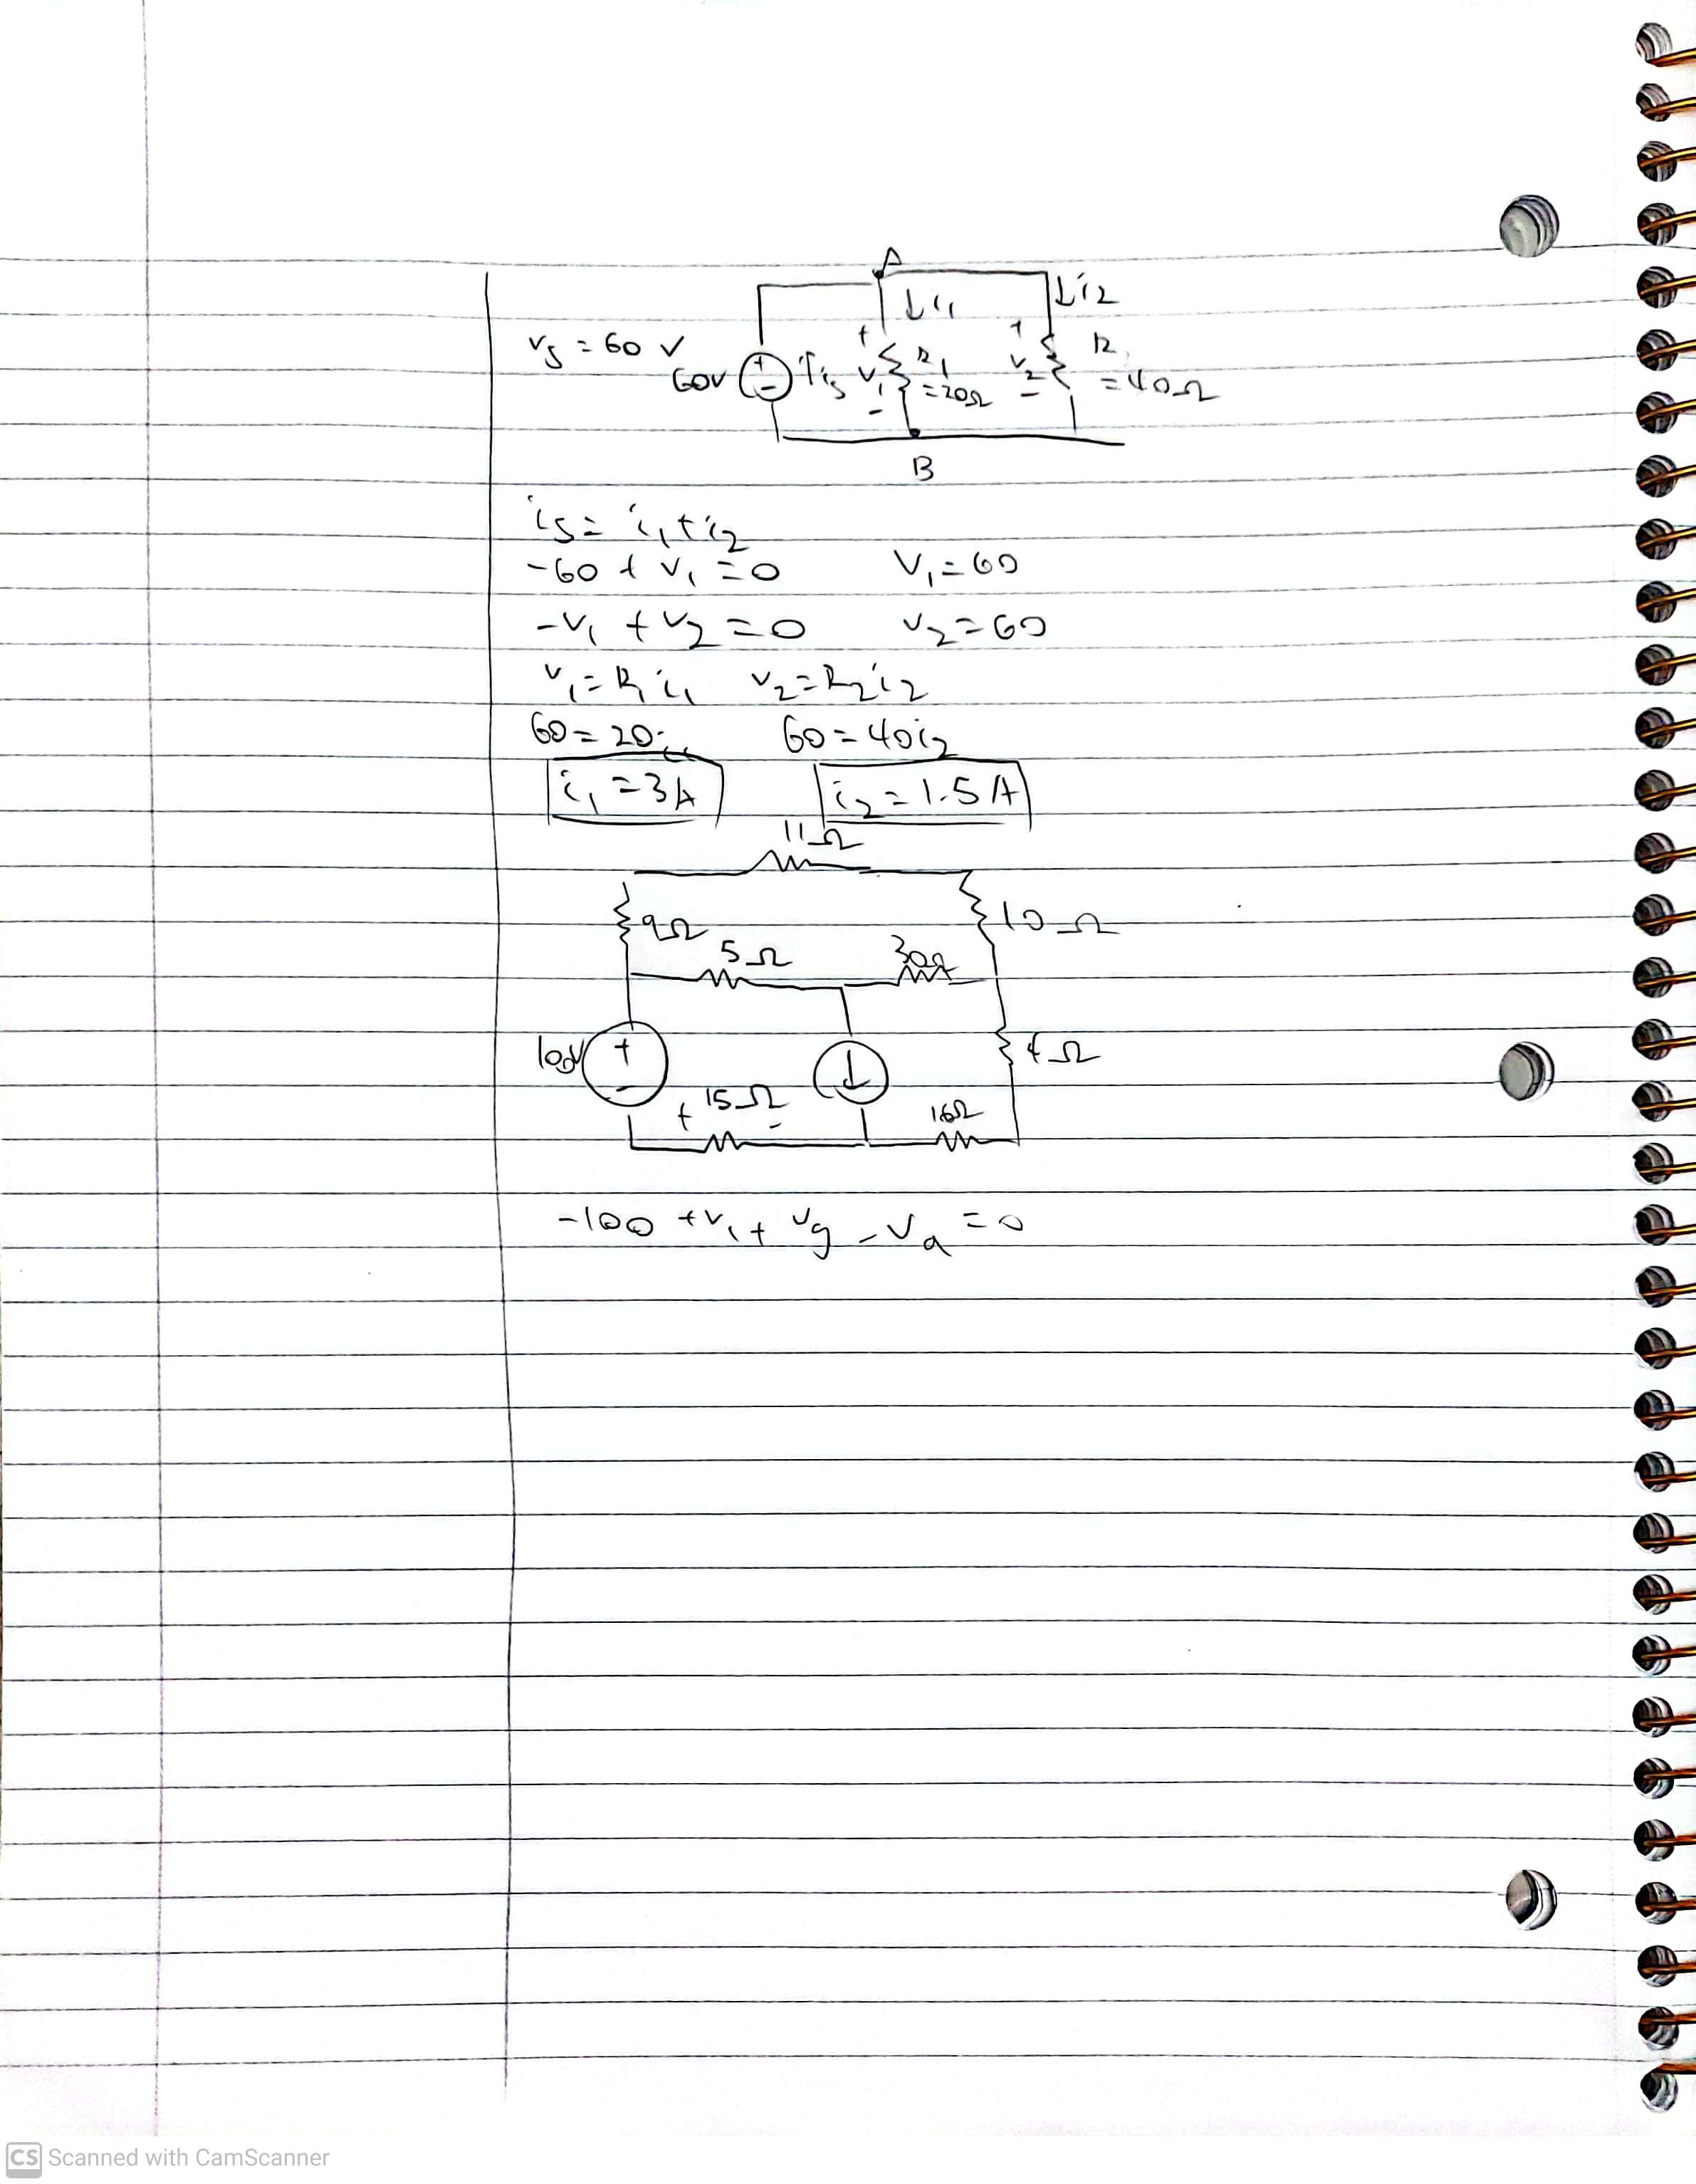 A
↓i₁
↓i₂
vₛ = 60 V
60V
+
-
↑iₛ
+
v₁
-
R₁
= 20Ω
+
v₂
-
R
= 40Ω
B
iₛ = i₁ + i₂
-60 + v₁ = 0    V₁ = 60
-v₁ + v₂ = 0    v₂ = 60
v₁ = R₁i₁    v₂ = R₂i₂
60 = 20i₁    60 = 40i₂
i₁ = 3A    i₂ = 1.5A
11Ω
9Ω
10Ω
5Ω
30Ω
100V
+
-
↓
4Ω
+ 15Ω -
16Ω
-100 + v₁ + vg - va = 0
CS Scanned with CamScanner